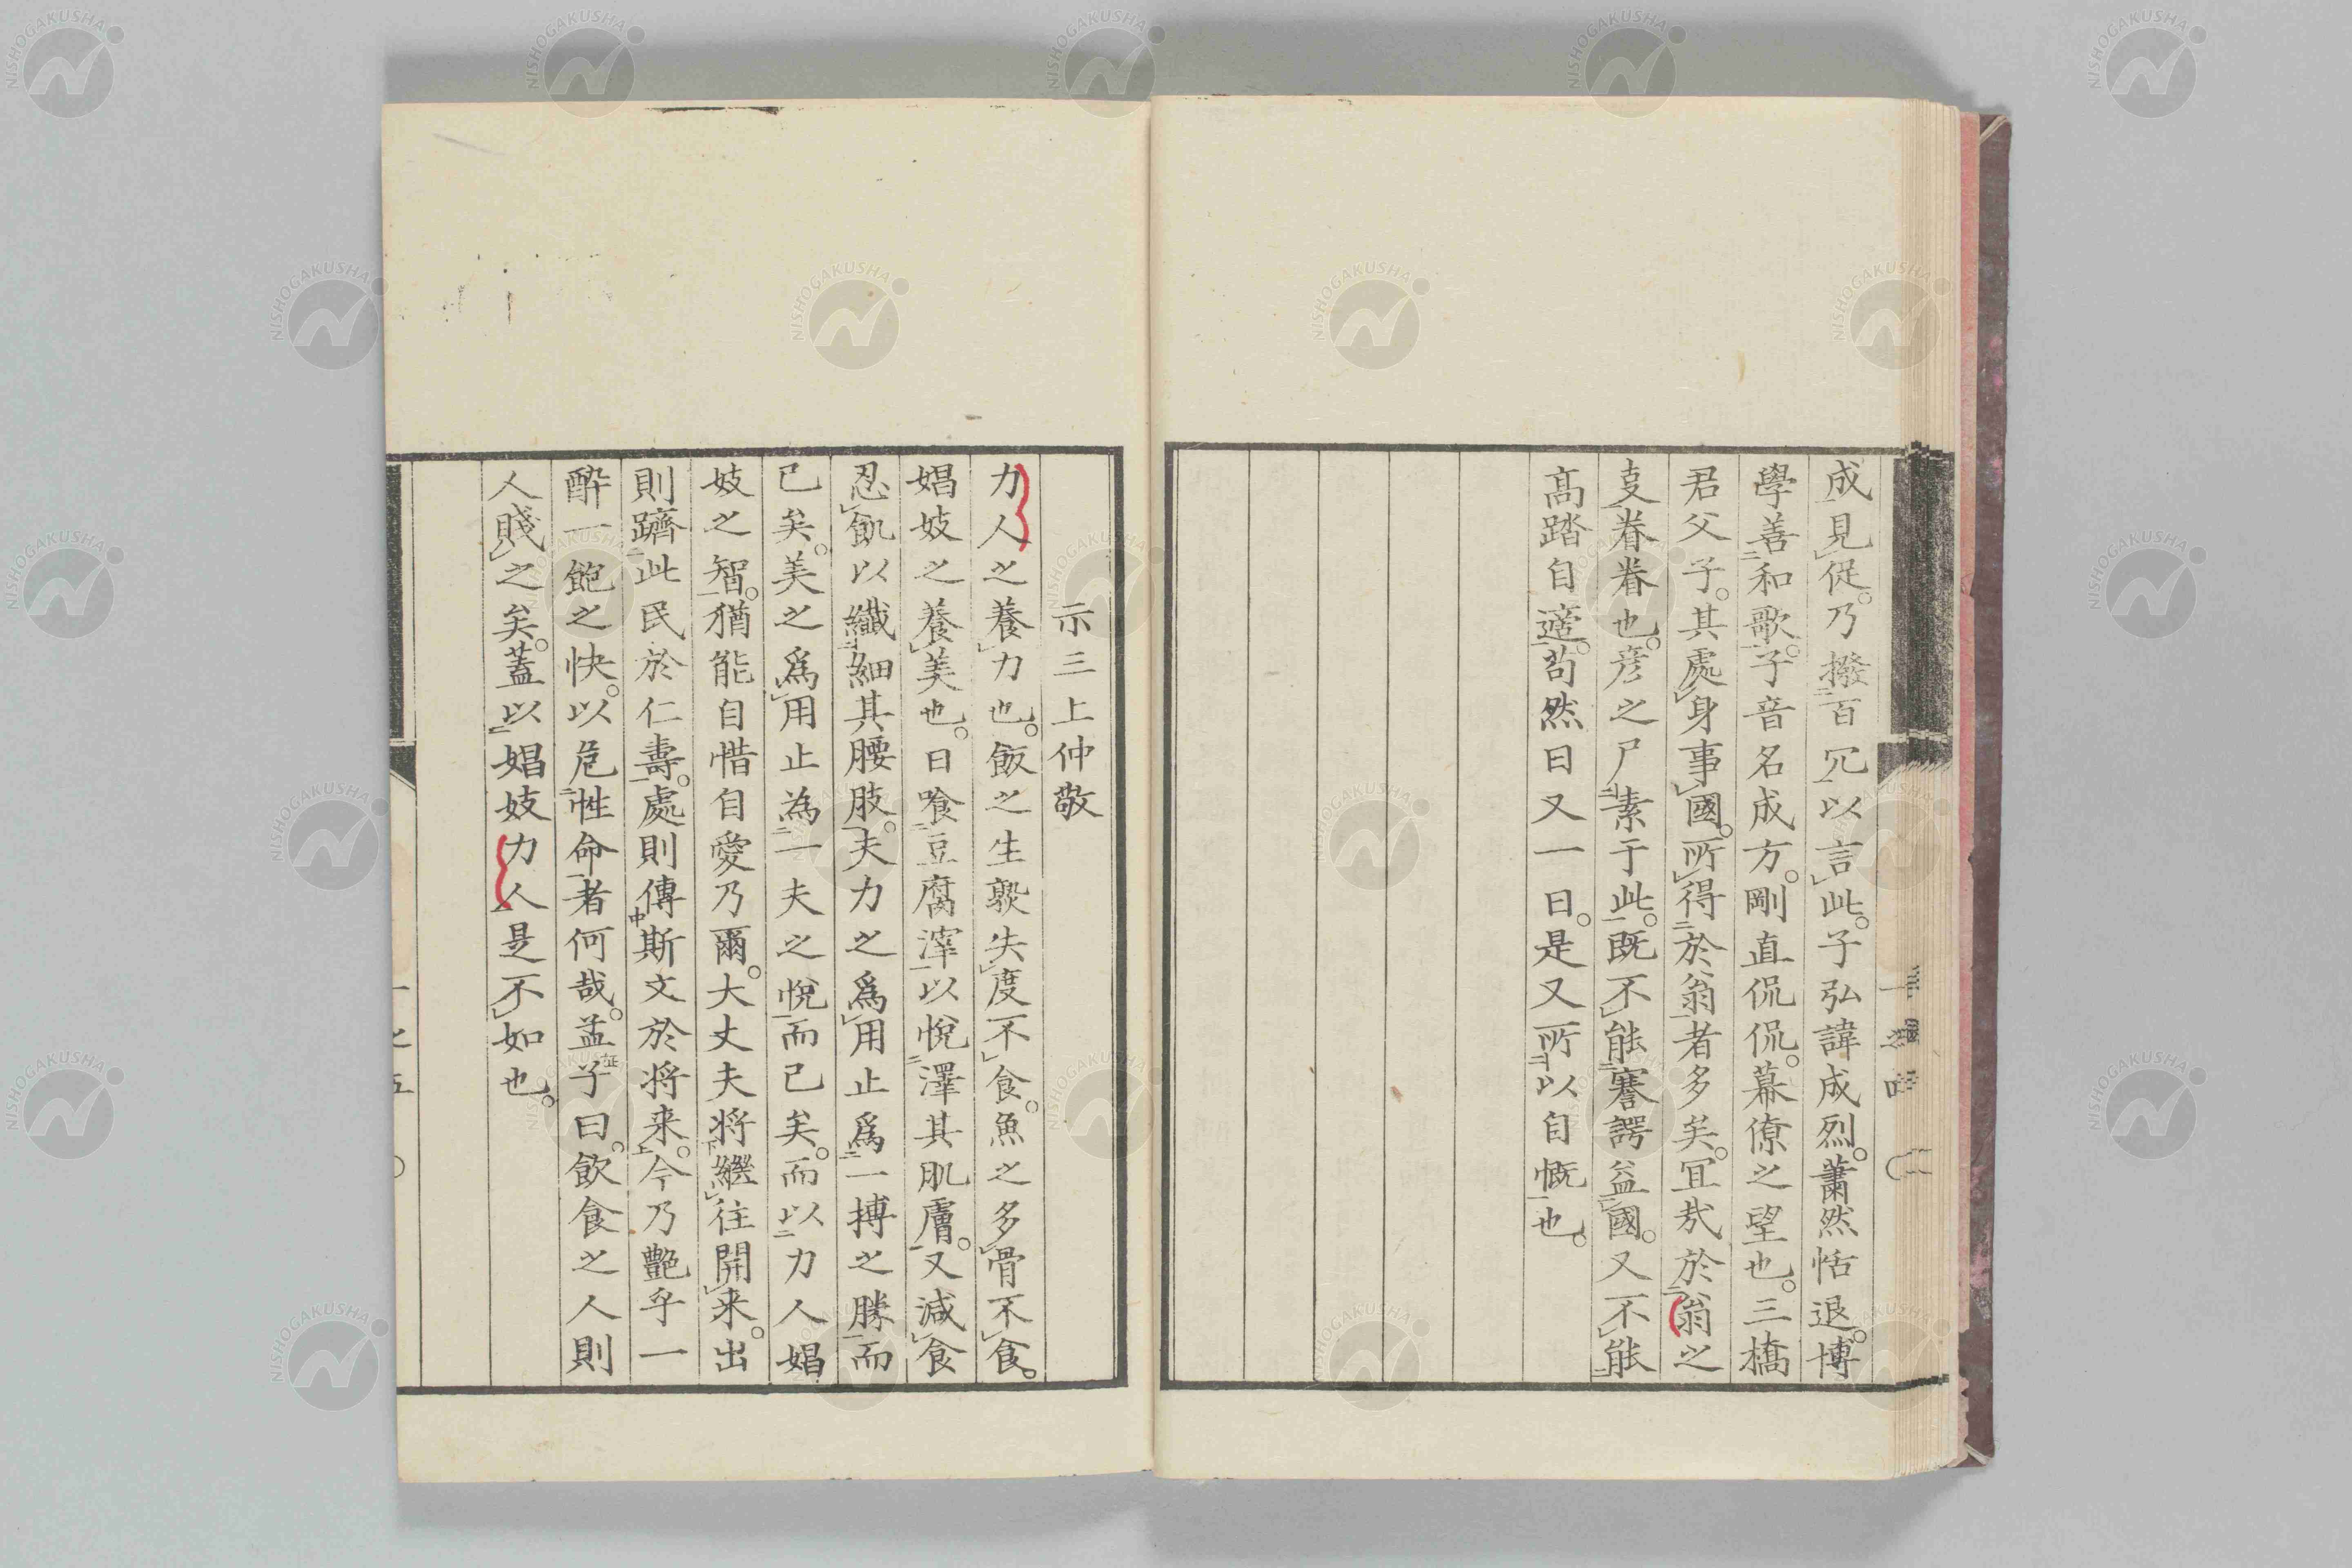 成見促。乃撥百冗以言此。子弘諱成烈。蕭然恬退。博
學善和歌。子音名成方。剛直侃侃。幕僚之望也。三橋
君父子。其處身事國。所得於翁者多矣。冝哉於翁之
叓眷眷也。彦之尸素于此。既不能謇諤益國。又不能
髙踏自適。苟然曰又一日。是又所以自慨也。
示三上仲敬
力人之養力也。飯之生熟失度不食。魚之多骨不食。
娼妓之養美也。日喰豆腐滓以悅澤其肌膚。又減食
忍飢以纖細其腰肢。夫力之爲用止爲一搏之勝而
已矣。美之爲用止為一夫之悅而已矣。而以力人娼
妓之智。猶能自惜自愛乃爾。大丈夫将繼往開来。出
則躋此民於仁壽。處則傳斯文於将来。今乃艶乎一
酔一飽之快。以危性命者何哉。孟子曰。飲食之人則
人賤之矣。蓋以娼妓力人是不如也。